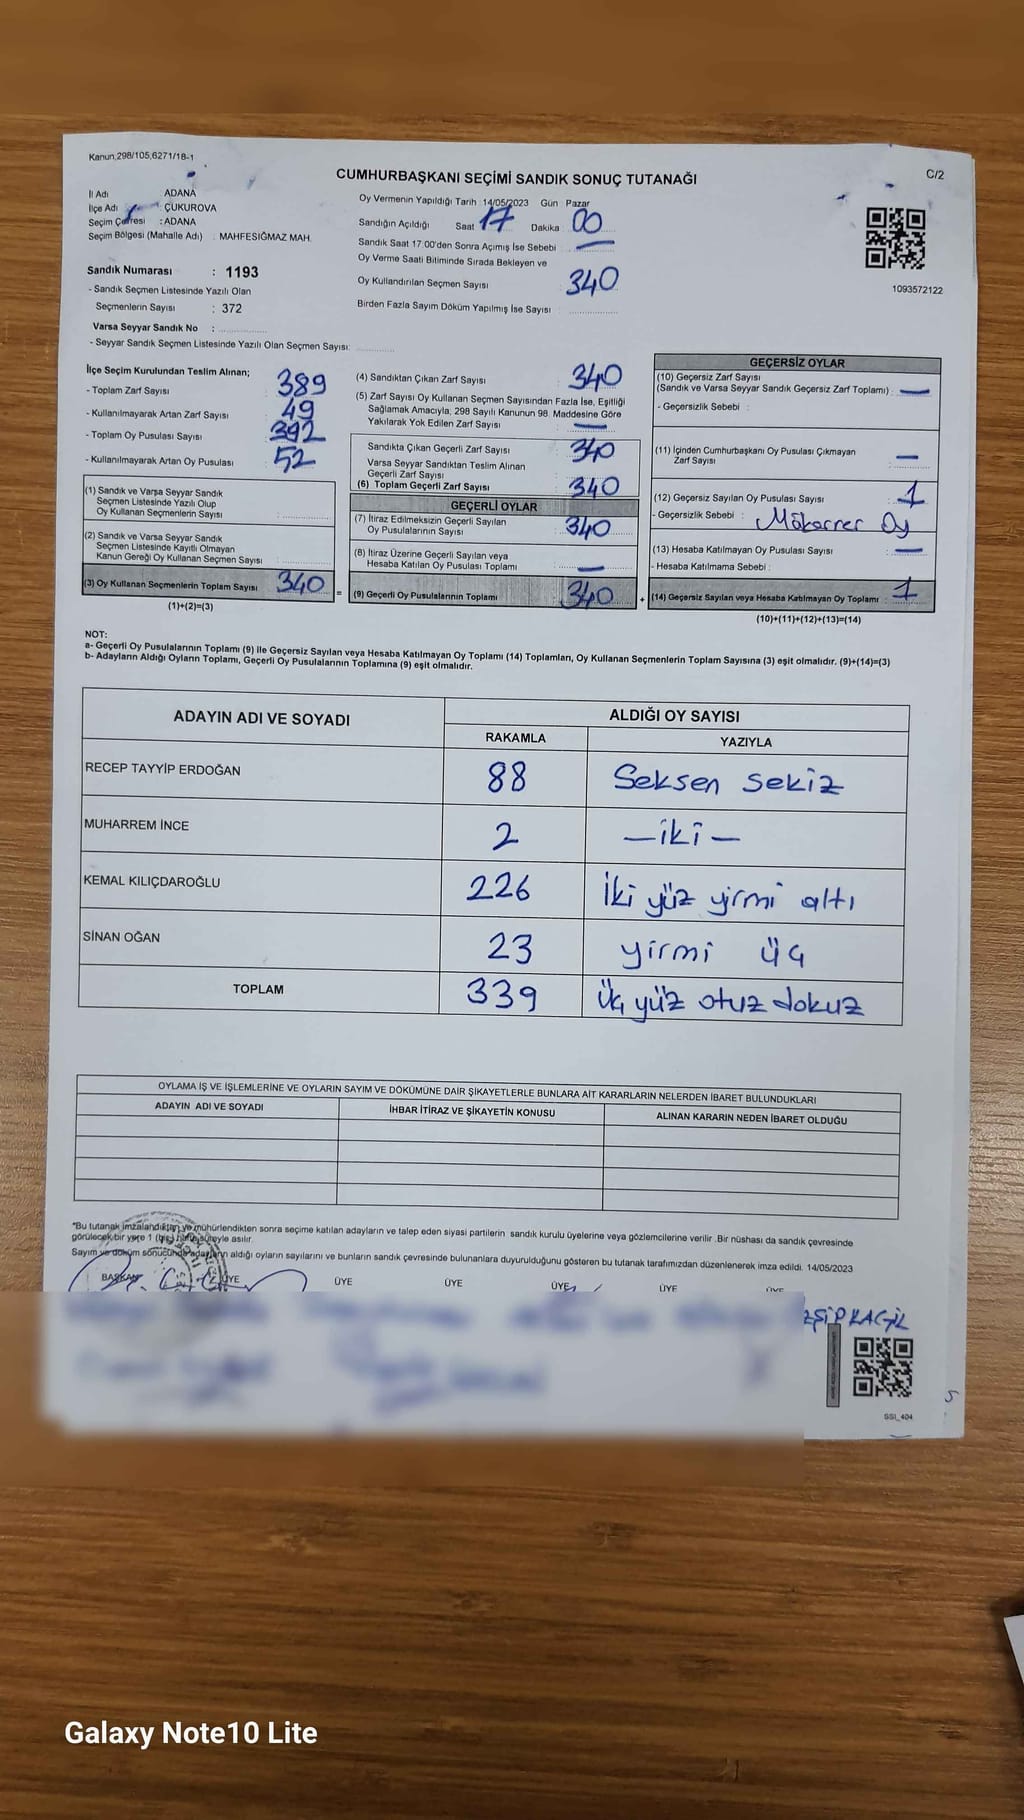 Kanun,298/105,6271/18-1
CUMHURBAŞKANI SEÇİMİ SANDIK SONUÇ TUTANAĞI
C/2
İl Adı ADANA
İlçe Adı : ÇUKUROVA
Seçim Çevresi : ADANA
Seçim Bölgesi (Mahalle Adı) : MAHFESIĞMAZ MAH.
Oy Vermenin Yapıldığı Tarih :14/05/2023 Gün Pazar
Sandığın Açıldığı Saat 17 Dakika 00
Sandık Saat 17:00'den Sonra Açımış İse Sebebi : —
Oy Verme Saati Bitiminde Sırada Bekleyen ve
Oy Kullandırılan Seçmen Sayısı 340
Birden Fazla Sayım Döküm Yapılmış İse Sayısı
1093572122
Sandık Numarası : 1193
- Sandık Seçmen Listesinde Yazılı Olan
Seçmenlerin Sayısı : 372
Varsa Seyyar Sandık No :
- Seyyar Sandık Seçmen Listesinde Yazılı Olan Seçmen Sayısı:
İlçe Seçim Kurulundan Teslim Alınan;
- Toplam Zarf Sayısı 389
- Kullanılmayarak Artan Zarf Sayısı 49
- Toplam Oy Pusulası Sayısı 392
- Kullanılmayarak Artan Oy Pusulası 52
(1) Sandık ve Varsa Seyyar Sandık
Seçmen Listesinde Yazılı Olup
Oy Kullanan Seçmenlerin Sayısı
(2) Sandık ve Varsa Seyyar Sandık
Seçmen Listesinde Kayıtlı Olmayan
Kanun Gereği Oy Kullanan Seçmen Sayısı
(3) Oy Kullanan Seçmenlerin Toplam Sayısı 340
(1)+(2)=(3)
=
(4) Sandıktan Çıkan Zarf Sayısı 340
(5) Zarf Sayısı Oy Kullanan Seçmen Sayısından Fazla İse, Eşitliği
Sağlamak Amacıyla; 298 Sayılı Kanunun 98. Maddesine Göre
Yakılarak Yok Edilen Zarf Sayısı —
Sandıkta Çıkan Geçerli Zarf Sayısı 340
Varsa Seyyar Sandıktan Teslim Alınan
Geçerli Zarf Sayısı
(6) Toplam Geçerli Zarf Sayısı 340
GEÇERLİ OYLAR
(7) İtiraz Edilmeksizin Geçerli Sayılan
Oy Pusulalarının Sayısı 340
(8) İtiraz Üzerine Geçerli Sayılan veya
Hesaba Katılan Oy Pusulası Toplamı —
(9) Geçerli Oy Pusulalarının Toplamı 340
+
GEÇERSİZ OYLAR
(10) Geçersiz Zarf Sayısı
(Sandık ve Varsa Seyyar Sandık Geçersiz Zarf Toplamı) : —
- Geçersizlik Sebebi :
(11) İçinden Cumhurbaşkanı Oy Pusulası Çıkmayan
Zarf Sayısı —
(12) Geçersiz Sayılan Oy Pusulası Sayısı 1
- Geçersizlik Sebebi : Mükerrer Oy
(13) Hesaba Katılmayan Oy Pusulası Sayısı —
- Hesaba Katılmama Sebebi :
(14) Geçersiz Sayılan veya Hesaba Katılmayan Oy Toplamı 1
(10)+(11)+(12)+(13)=(14)
NOT:
a- Geçerli Oy Pusulalarının Toplamı (9) ile Geçersiz Sayılan veya Hesaba Katılmayan Oy Toplamı (14) Toplamları, Oy Kullanan Seçmenlerin Toplam Sayısına (3) eşit olmalıdır. (9)+(14)=(3)
b- Adayların Aldığı Oyların Toplamı, Geçerli Oy Pusulalarının Toplamına (9) eşit olmalıdır.
ADAYIN ADI VE SOYADI ALDIĞI OY SAYISI
RAKAMLA YAZIYLA
RECEP TAYYİP ERDOĞAN 88 Seksen sekiz
MUHARREM İNCE 2 —iki—
KEMAL KILIÇDAROĞLU 226 İki yüz yirmi altı
SİNAN OĞAN 23 yirmi üç
TOPLAM 339 Üç yüz otuz dokuz
OYLAMA İŞ VE İŞLEMLERİNE VE OYLARIN SAYIM VE DÖKÜMÜNE DAİR ŞİKAYETLERLE BUNLARA AİT KARARLARIN NELERDEN İBARET BULUNDUKLARI
ADAYIN ADI VE SOYADI İHBAR İTİRAZ VE ŞİKAYETİN KONUSU ALINAN KARARIN NEDEN İBARET OLDUĞU
*Bu tutanak imzalandıktan ve mühürlendikten sonra seçime katılan adayların ve talep eden siyasi partilerin sandık kurulu üyelerine veya gözlemcilerine verilir .Bir nüshası da sandık çevresinde
görülecek bir yere 1 (bir) hafta süreyle asılır.
Sayım ve döküm sonucunda adayların aldığı oyların sayılarını ve bunların sandık çevresinde bulunanlara duyurulduğunu gösteren bu tutanak tarafımızdan düzenlenerek imza edildi. 14/05/2023
BAŞKAN ÜYE ÜYE ÜYE ÜYE ÜYE ÜYE
SSI_404
Galaxy Note10 Lite